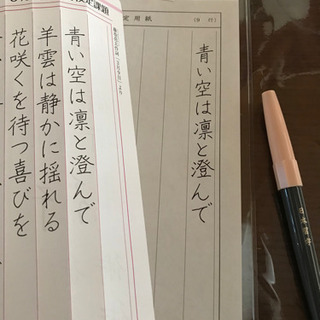 定課題
青い空は凛と澄んで
羊雲は静かに揺れる
花咲くを待つ喜びを
定用紙
青い空は凛と澄んで